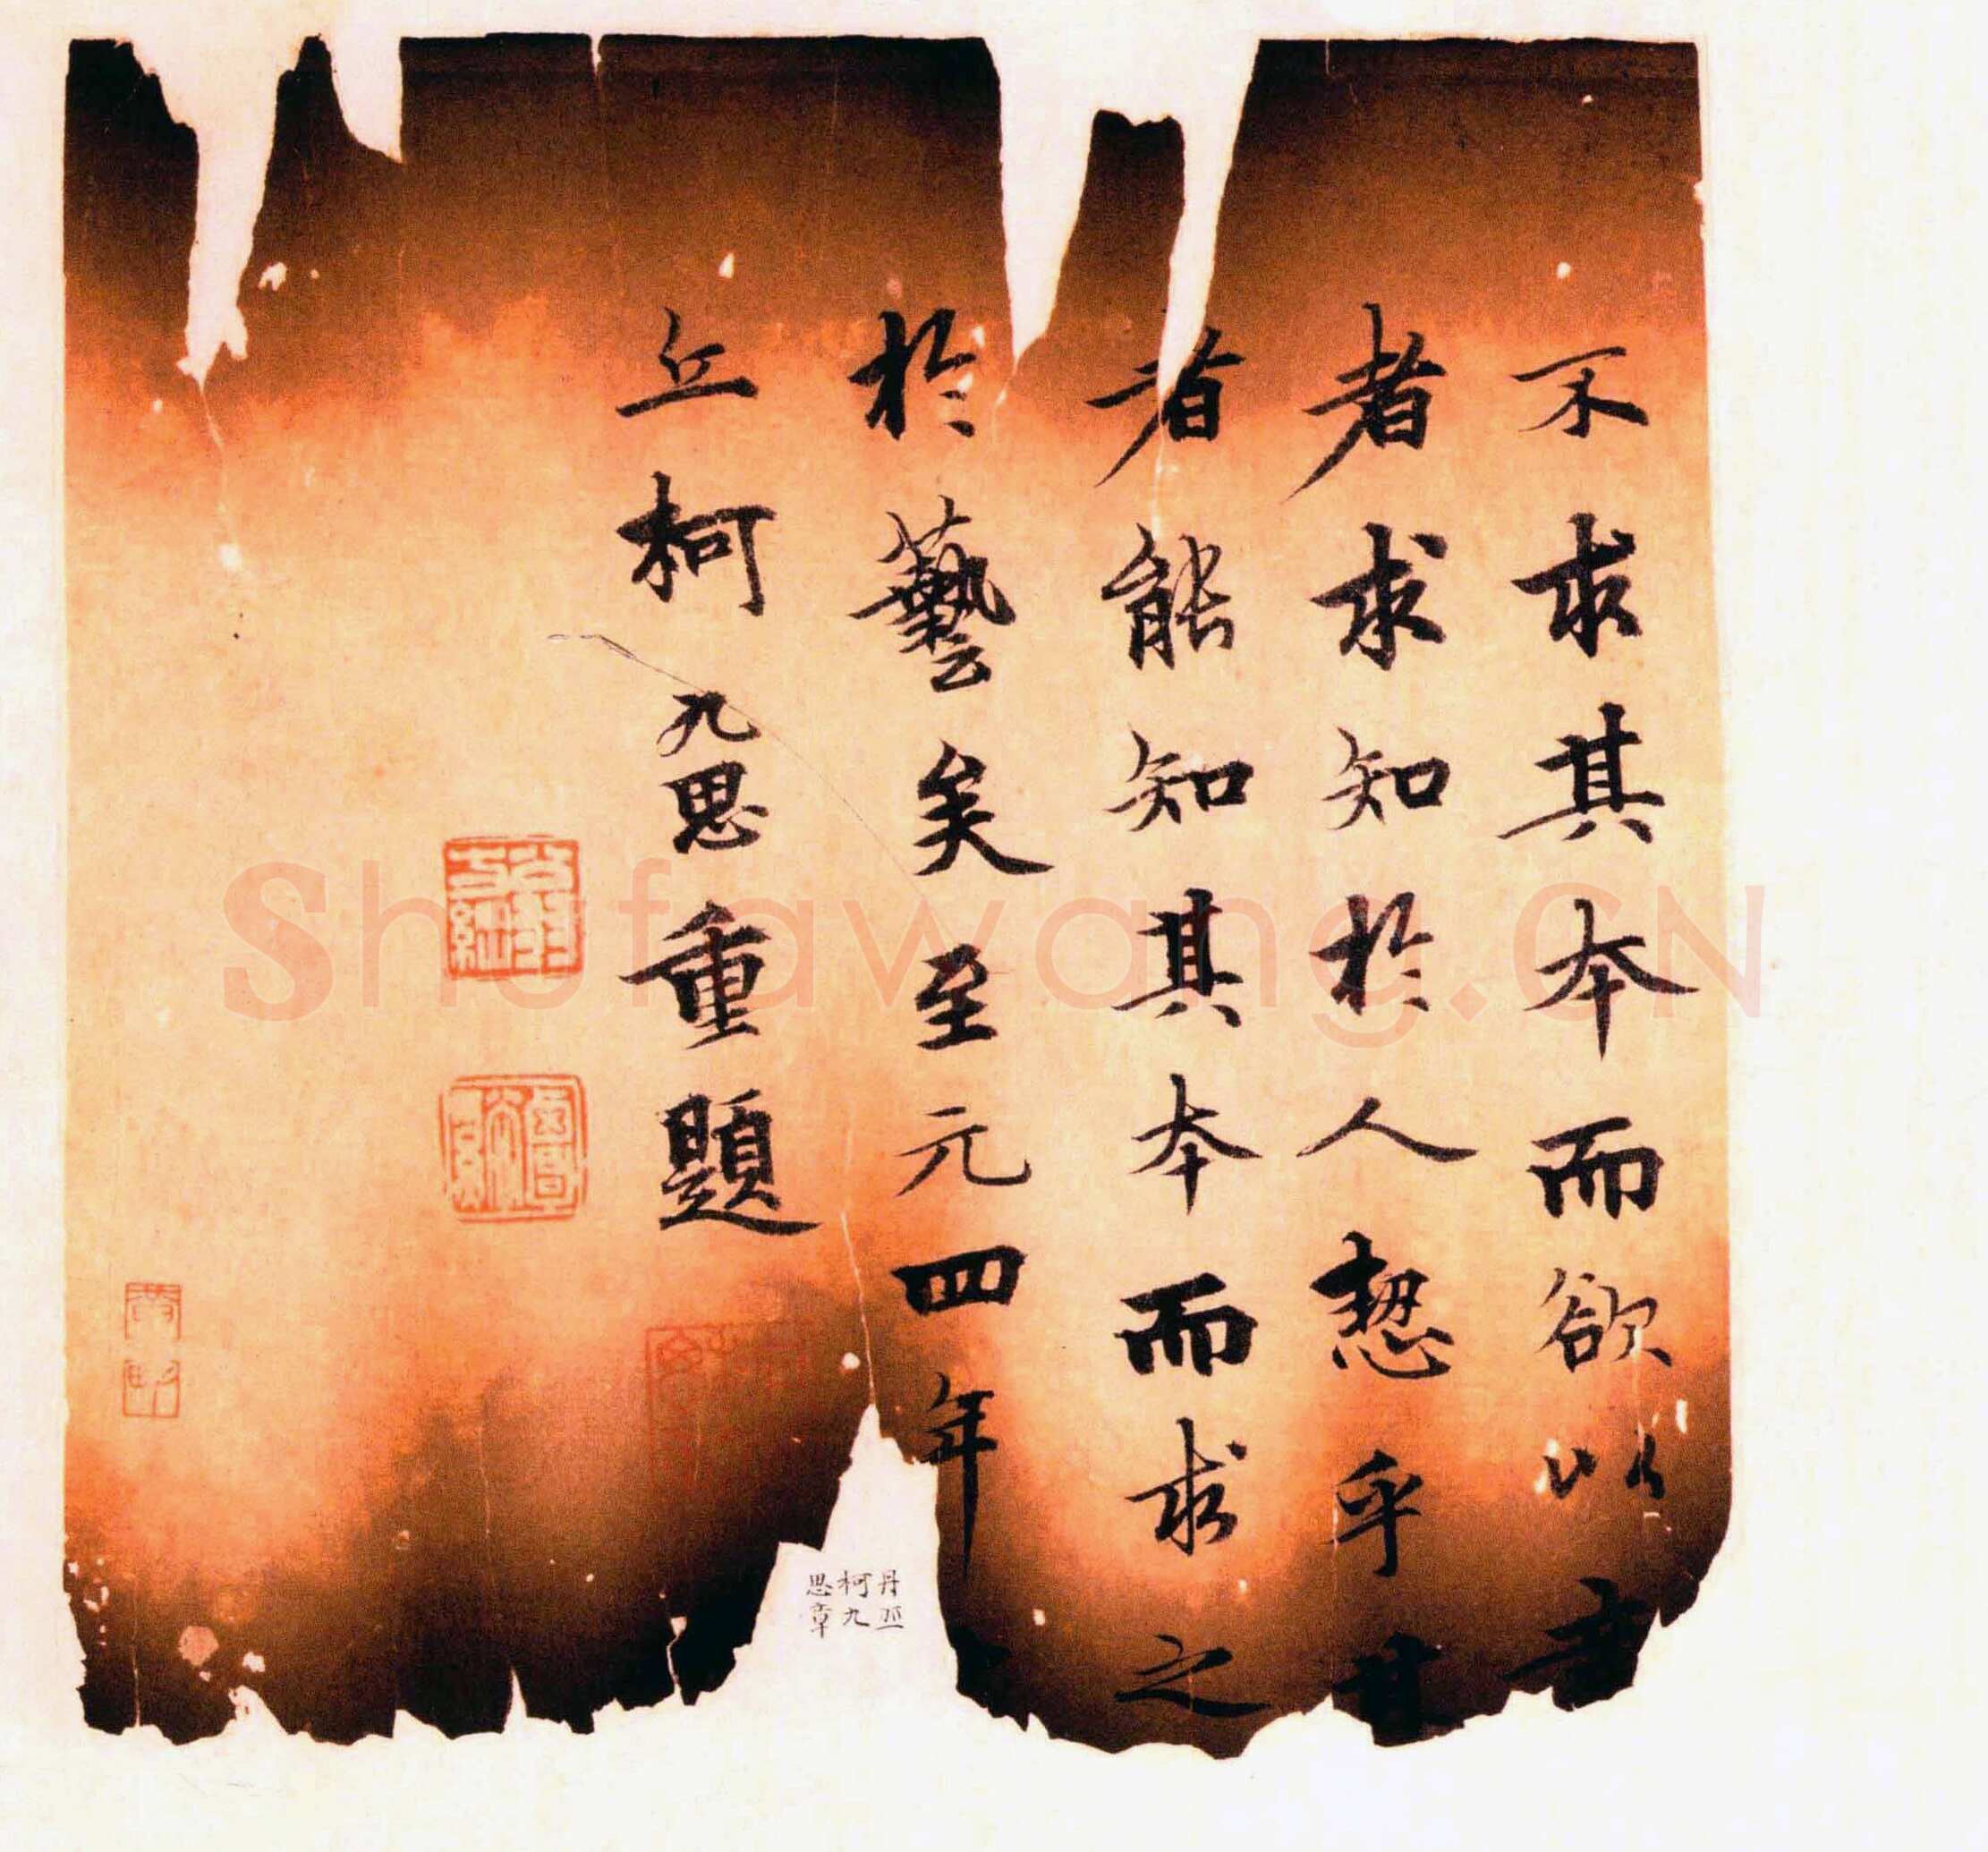 不求其本而欲以
者求知於人恝乎
者能知其本而求之
於藝矣至元四年
丘柯九思重題
丹丘
柯九
思章
Shufawang.CN